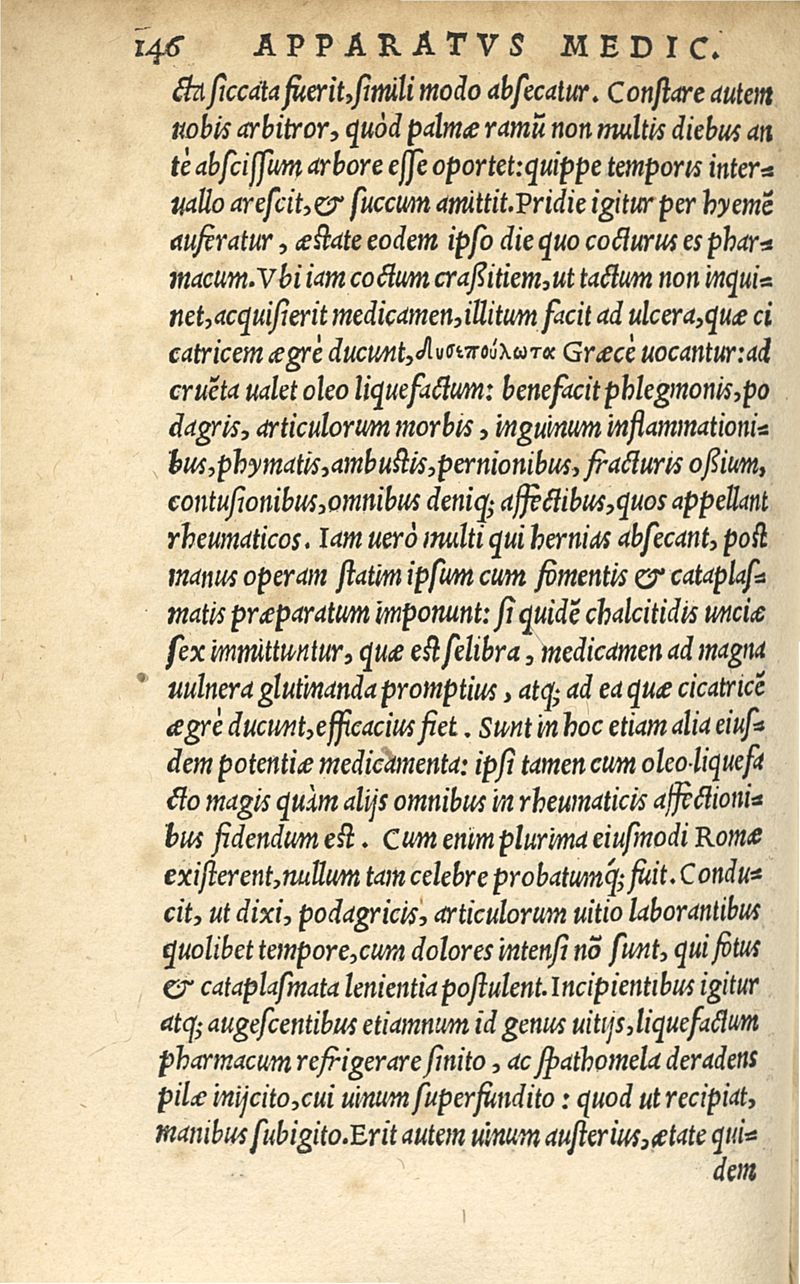 146 APPARATVS MEDIC.
cta siccata fuerit, simili modo absecatur. Constare autem
uobis arbitror, quòd palmæ ramũ non multis diebus an
tè abscissum arbore esse oportet: quippe temporis inter=
uallo arescit, & succum amittit. Pridie igitur per hyemẽ
auferatur, æstate eodem ipso die quo cocturus es phar=
macum. Vbi iam coctum craßitiem, ut tactum non inqui=
net, acquisierit medicamen, illitum facit ad ulcera, quæ ci
catricem ægrè ducunt, δυσεπούλωτα Græcè uocantur: ad
cruẽta ualet oleo liquefactum: benefacit phlegmonis, po
dagris, articulorum morbis, inguinum inflammationi=
bus, phymatis, ambustis, pernionibus, fracturis oßium,
contusionibus, omnibus deniq; affectibus, quos appellant
rheumaticos. Iam uerò multi qui hernias absecant, post
manus operam statim ipsum cum fomentis & cataplas=
matis præparatum imponunt: si quidẽ chalcitidis unciæ
sex immittuntur, quæ est selibra, medicamen ad magna
uulnera glutinanda promptius, atq; ad ea quæ cicatricẽ
ægrè ducunt, efficacius fiet. Sunt in hoc etiam alia eius=
dem potentiæ medicamenta: ipsi tamen cum oleo liquefa
cto magis quàm alijs omnibus in rheumaticis affectioni=
bus fidendum est. Cum enim plurima eiusmodi Romæ
existerent, nullum tam celebre probatumq́; fuit. Condu=
cit, ut dixi, podagricis, articulorum uitio laborantibus
quolibet tempore, cum dolores intensi nõ sunt, qui fotus
& cataplasmata lenientia postulent. Incipientibus igitur
atq; augescentibus etiamnum id genus uitijs, liquefactum
pharmacum refrigerare sinito, ac spathomela deradens
pilæ inijcito, cui uinum superfundito: quod ut recipiat,
manibus subigito. Erit autem uinum austerius, ætate qui=
dem